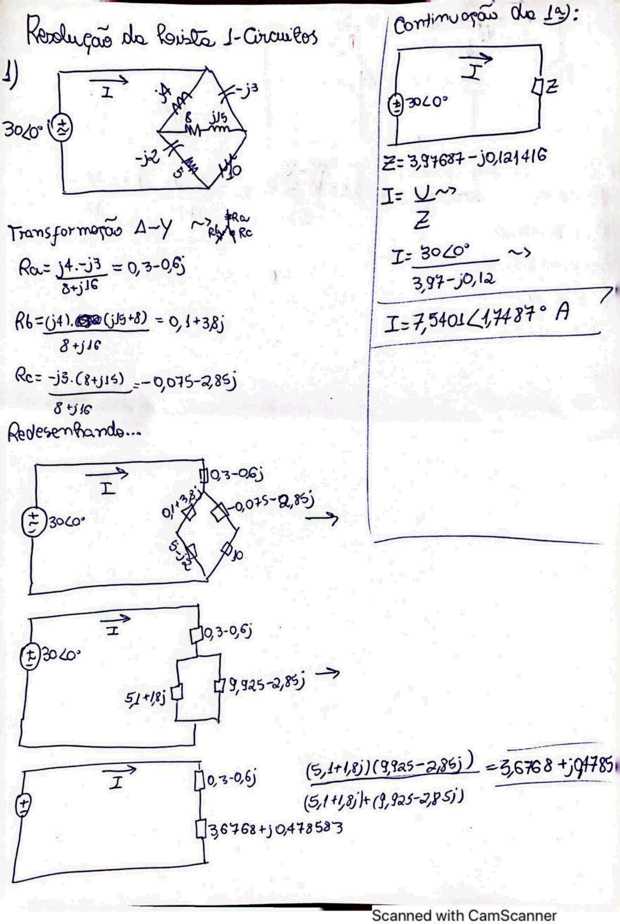 Resolução da Lista 1-Circuitos
1)
I
30∠0°
j4
-j3
8
j15
-j2
5
10
Transformação Δ-Y ⇝ Ra
Rb
Rc
Ra = j4.-j3 / 8+j16 = 0,3-0,6j
Rb = (j4).(j15+8) / 8+j16 = 0,1+3,8j
Rc = -j3.(8+j15) / 8+j16 = -0,075-2,85j
Redesenhando...
I
30∠0°
0,3-0,6j
0,1+3,8j
-0,075-2,85j
5-j2
10
→
I
30∠0°
0,3-0,6j
5,1+1,8j
9,925-2,85j
→
I
0,3-0,6j
3,6768+j0,478583
(5,1+1,8j)(9,925-2,85j) / (5,1+1,8j)+(9,925-2,85j) = 3,6768+j0,4785
Continuação da 1ª):
I
30∠0°
Z
Z = 3,97687-j0,121416
I = U / Z ⇝
I = 30∠0° / 3,97-j0,12 ⇝
I = 7,5401∠1,7487° A
Scanned with CamScanner